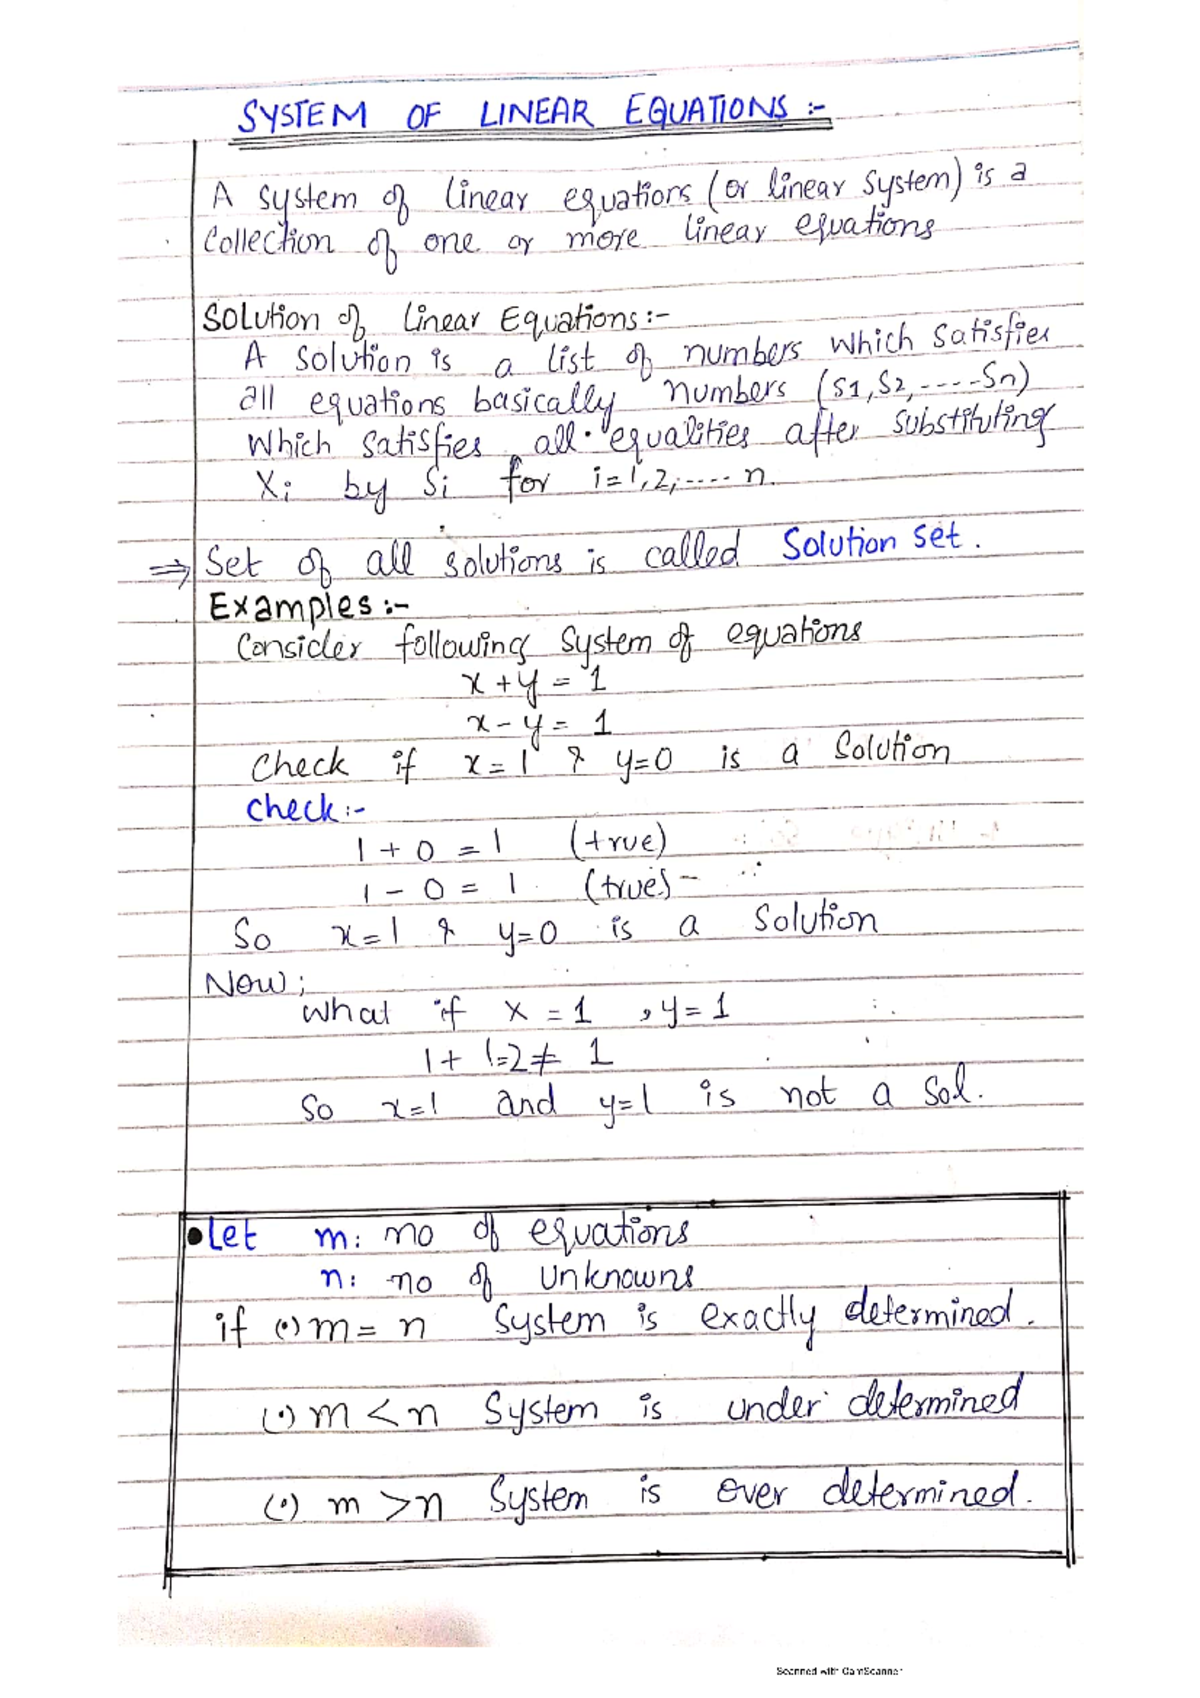 SYSTEM OF LINEAR EQUATIONS :-
A system of linear equations (or linear system) is a
collection of one or more linear equations
Solution of linear Equations:-
A solution is a list of numbers which satisfies
all equations basically numbers (S1, S2, ----- Sn)
Which satisfies all equalities after substituting
Xi by Si for i=1,2,---- n.
⇒ Set of all solutions is called Solution set.
Examples :-
Consider following system of equations
x + y = 1
x - y = 1
Check if x = 1 & y=0 is a solution
Check:-
1 + 0 = 1 (true)
1 - 0 = 1 (true)
So x=1 & y=0 is a solution
Now;
What if x = 1 , y = 1
1 + 1=2 ≠ 1
So x=1 and y=1 is not a sol.
• Let m: no of equations
n: no of unknowns
if (•) m = n System is exactly determined.
(•) m < n System is under determined
(•) m > n System is over determined.
Scanned with CamScanner